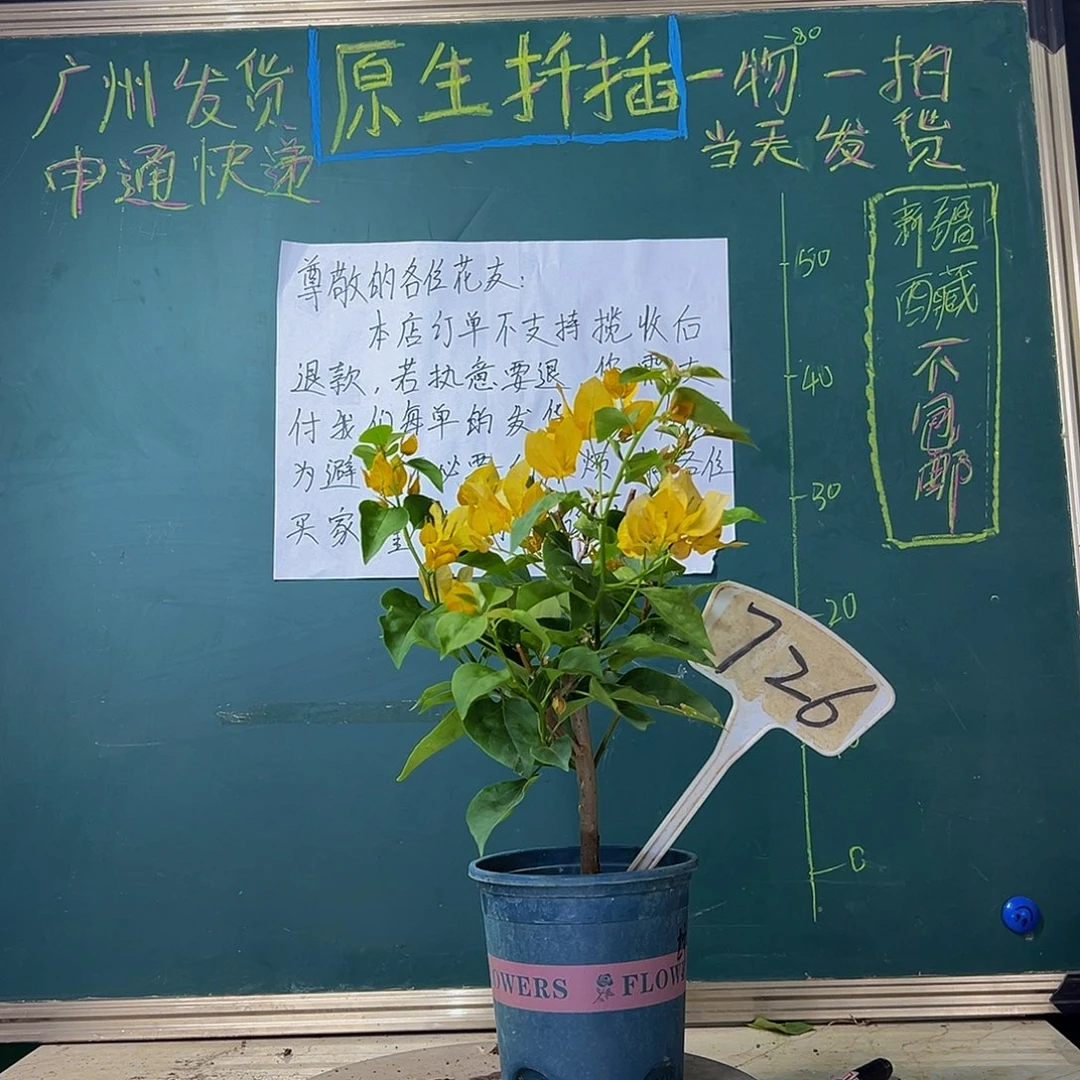 广州发货
申通快递
原生扦插
一物一拍
80
当天发货
新疆
西藏
不包邮
尊敬的各位花友:
本店订单不支持揽收后
退款,若执意要退
付我们每单的发
为避
各位
买家
50
40
30
20
0
726
OWERS FLOW